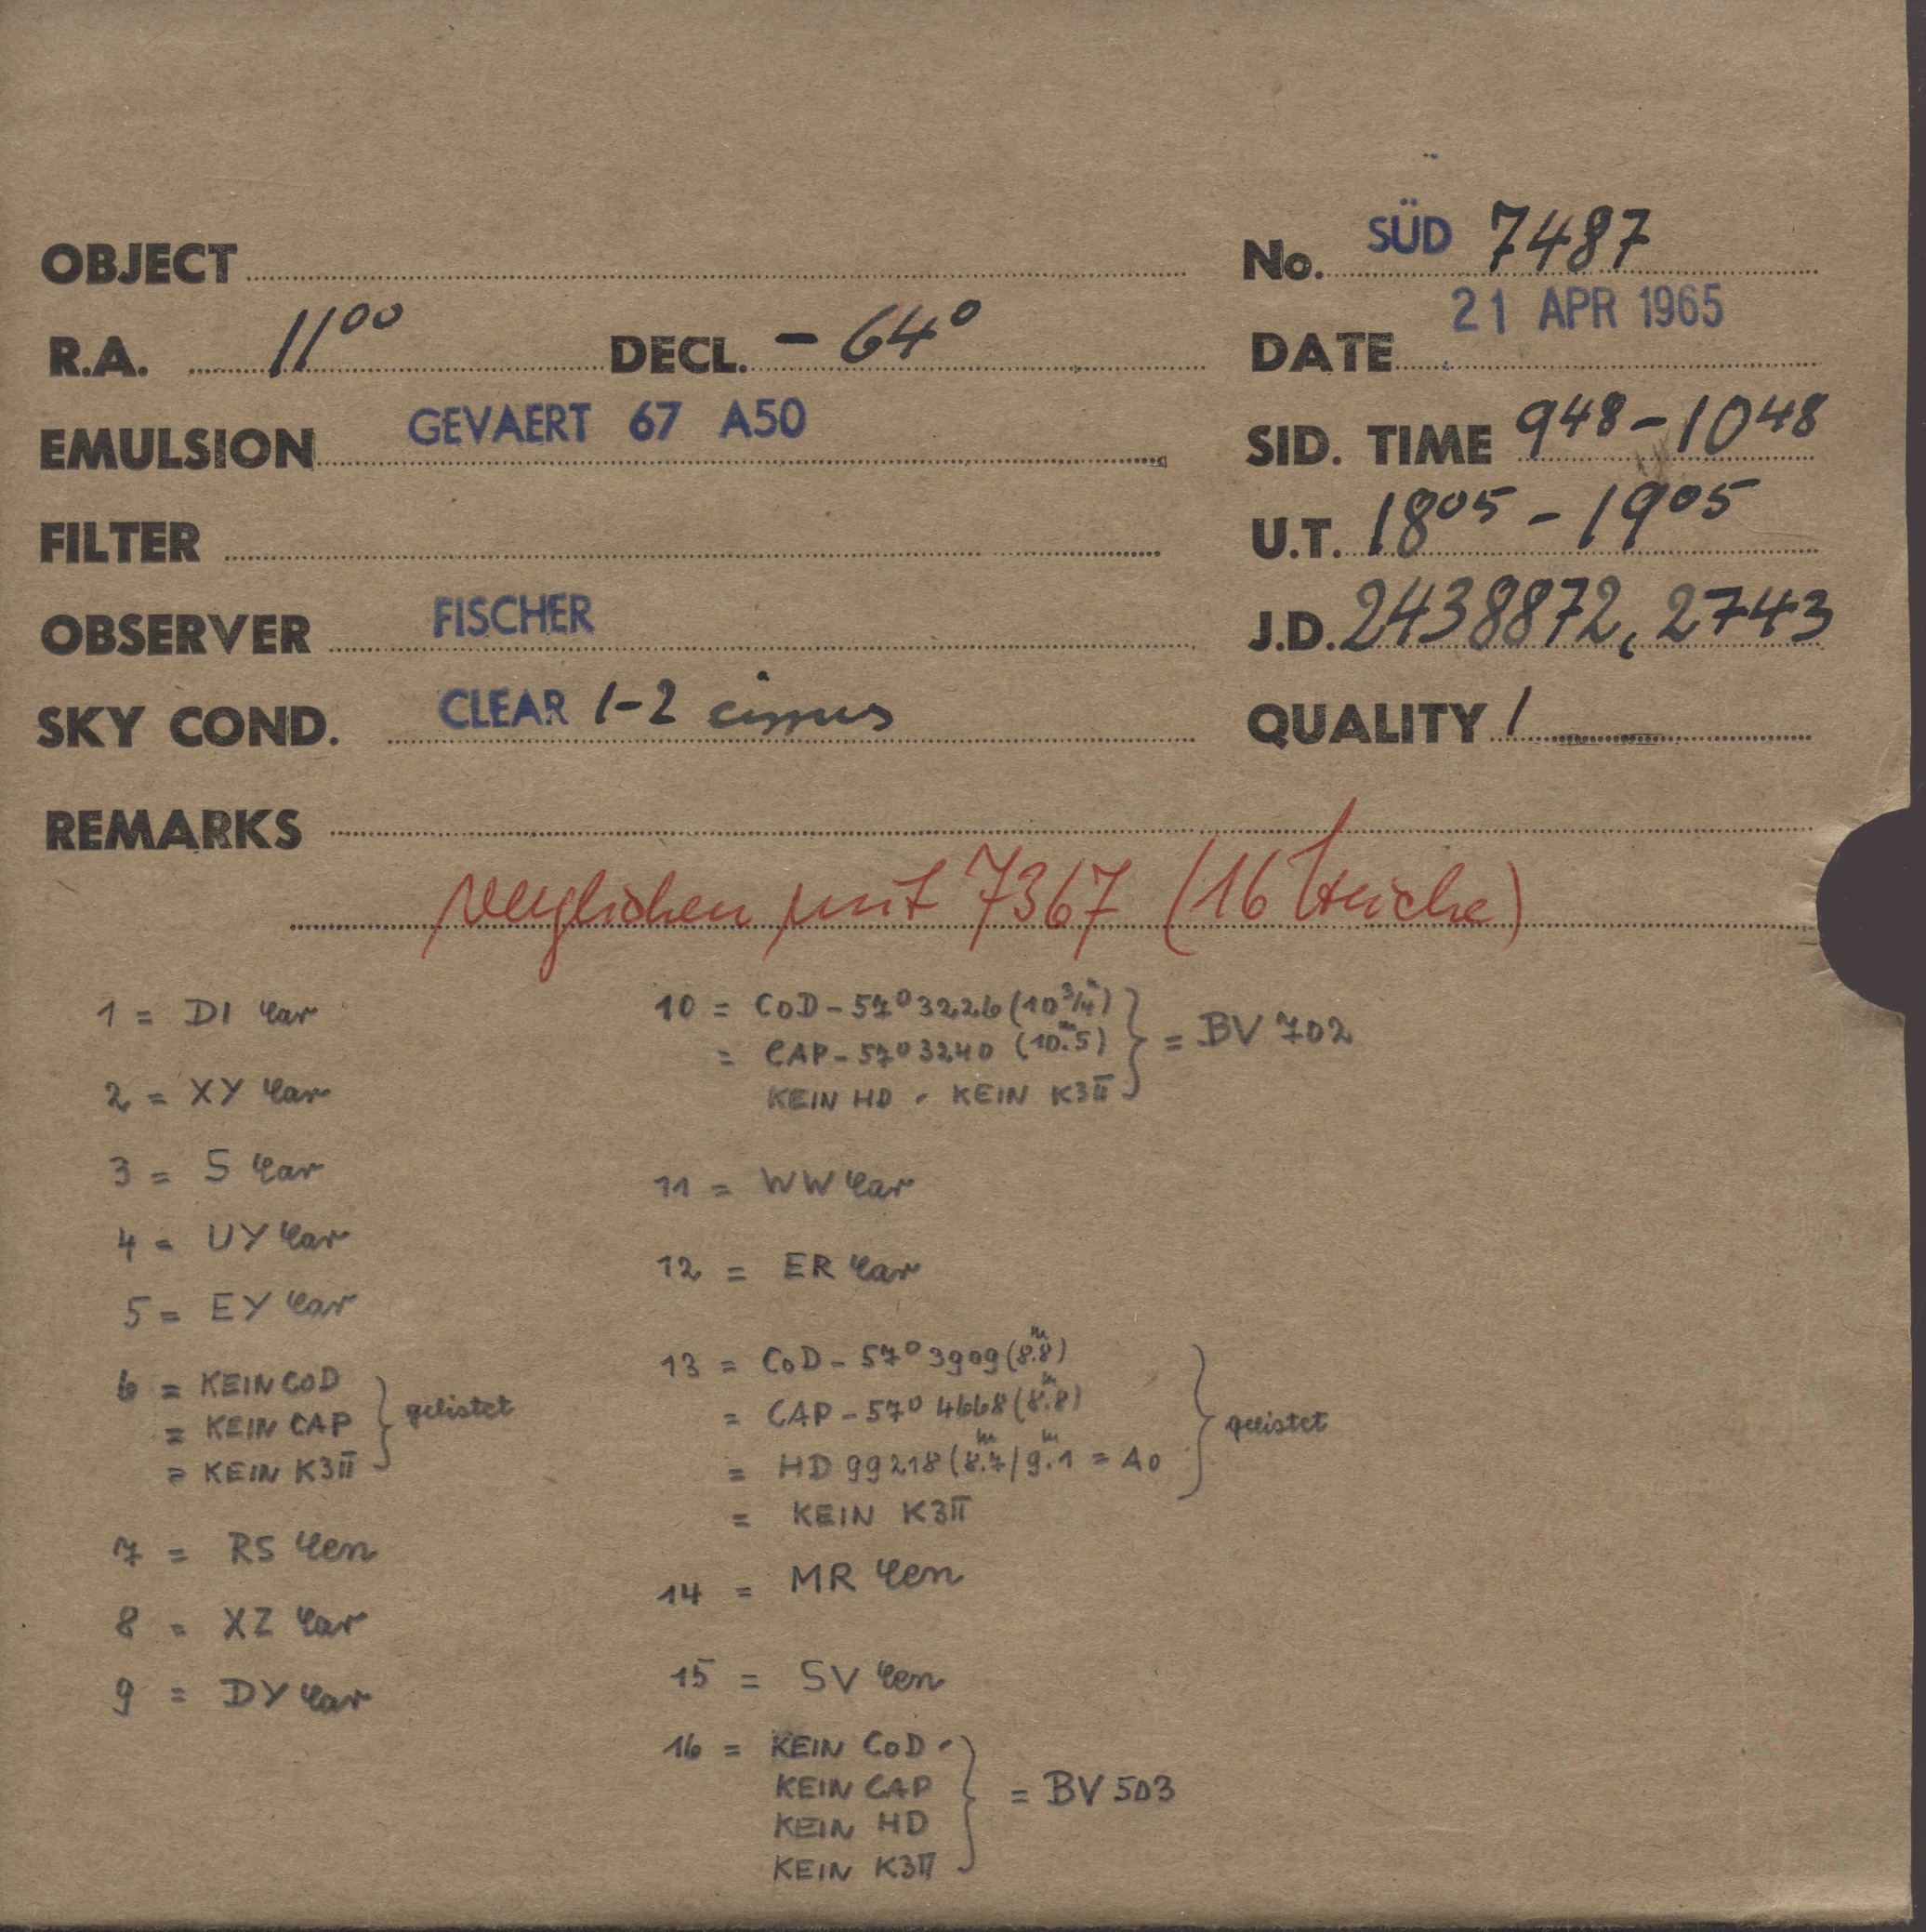 OBJECT
No. SÜD 7487
R.A. 11⁰⁰ DECL. - 64°
DATE 21 APR 1965
EMULSION GEVAERT 67 A50
SID. TIME 9⁴⁸ - 10⁴⁸
FILTER
U.T. 18⁰⁵ - 19⁰⁵
OBSERVER FISCHER
J.D. 2438872,2743
SKY COND. CLEAR 1-2 cirrus
QUALITY 1
REMARKS
verglichen mit 7367 (16 Striche)
1 = DI Car
2 = XY Car
3 = S Car
4 = UY Car
5 = EY Car
6 = KEIN CoD
= KEIN CAP } gelistet
= KEIN K3II
7 = RS Cen
8 = XZ Car
9 = DY Car
10 = CoD - 57° 3226 (10 3/4ᵐ)
= CAP - 57° 3240 (10ᵐ.5) } = BV 702
KEIN HD . KEIN K3II
11 = WW Car
12 = ER Car
13 = CoD - 57° 3909 (8ᵐ.8)
= CAP - 57° 4668 (8ᵐ.8) } gelistet
= HD 99218 (8ᵐ.7/9ᵐ.1 = A0
= KEIN K3II
14 = MR Cen
15 = SV Cen
16 = KEIN CoD
KEIN CAP } = BV 503
KEIN HD
KEIN K3II